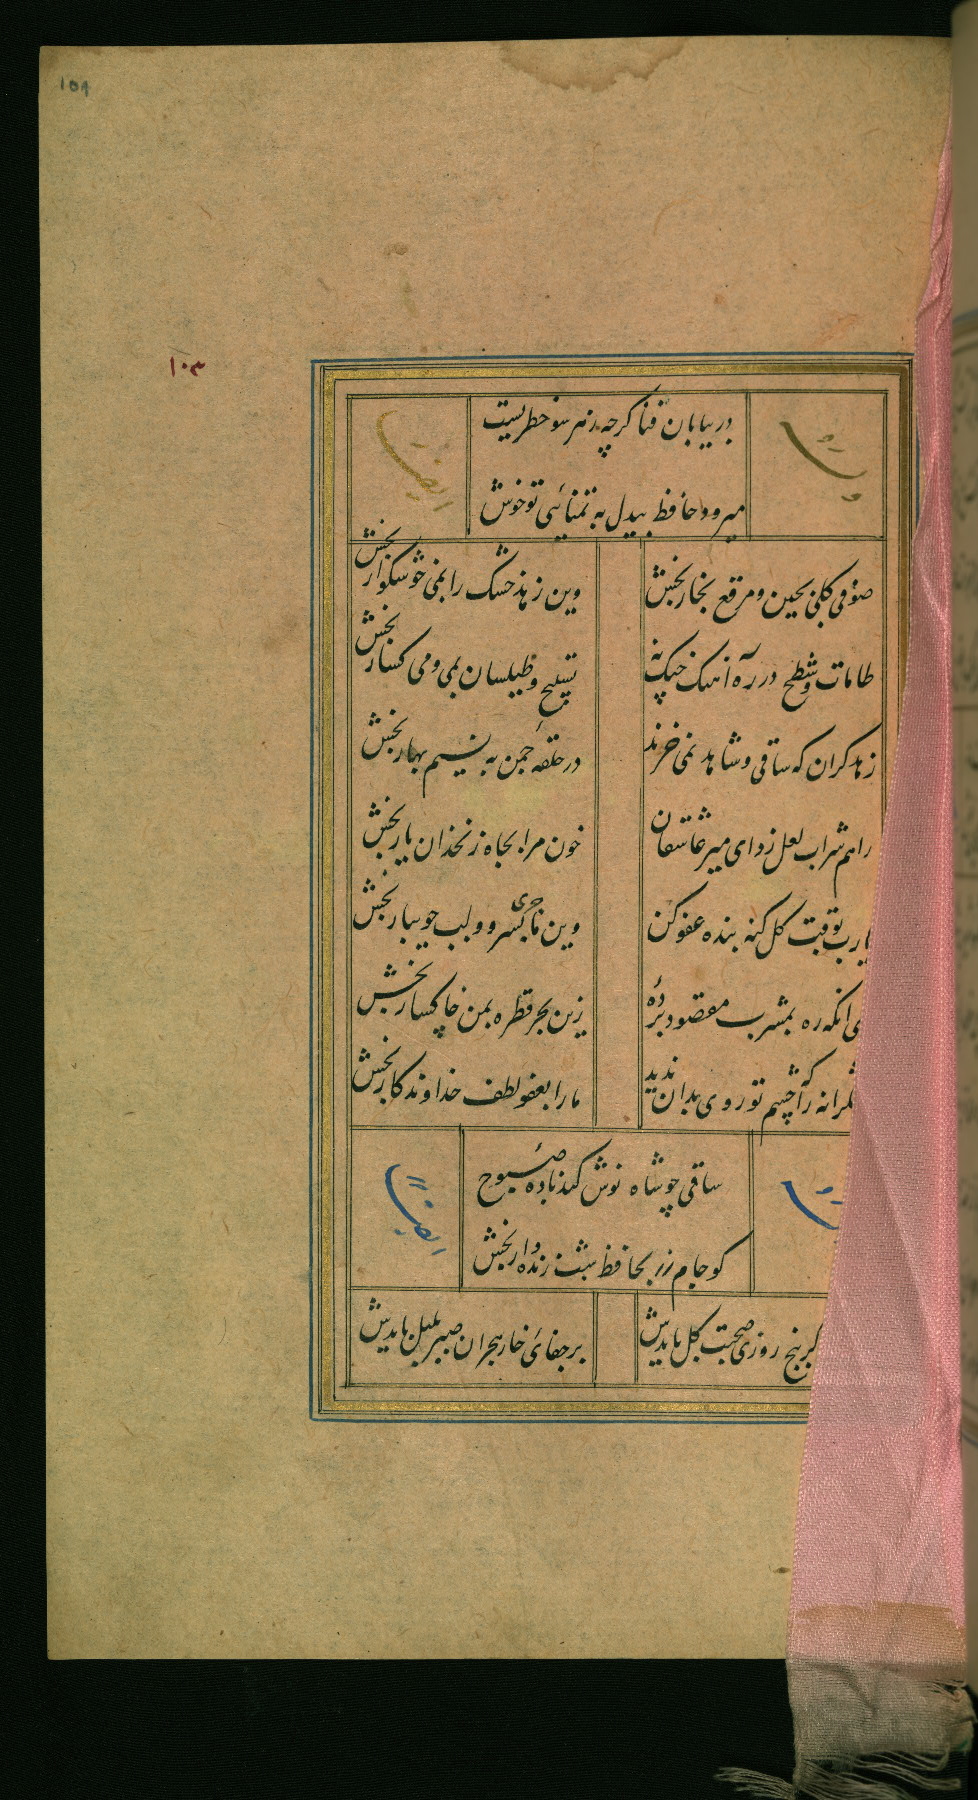 ۱۵۸
۱۰۳
در بیابان فنا کرچه زهر سو خطریست
میرود حافظ بیدل به تمنائی تو خوش
وله
ایضا
صوفی کلی بچین و مرقع بخار بخش
وین زهد خشک را بمی خوشکوار بخش
طامات و شطح در ره آهنک چنک نه
تسبیح و طیلسان بمی و می کسار بخش
زهد کران که ساقی و شاهد نمی خرند
در حلقه چمن به نسیم بهار بخش
راهم شراب لعل زد ای میر عاشقان
خون مرا بچاه زنخدان یار بخش
یا رب بوقت کل کنه بنده عفو کن
وین ماجری بسرو و لب جویبار بخش
ای انکه ره بمشرب مقصود بردهٔ
زین بحر قطره بمن خاکسار بخش
شکرانه را که چشم تو روی بدان ندید
ما را بعفو لطف خداوندکار بخش
ساقی چو شاه نوش کند باده صبوح
کو جام زر بحافظ شب زنده دار بخش
ایضا
کر پنج روزی صحبت کل بایدش
بر جفائ خار هجران صبر بلبل بایدش